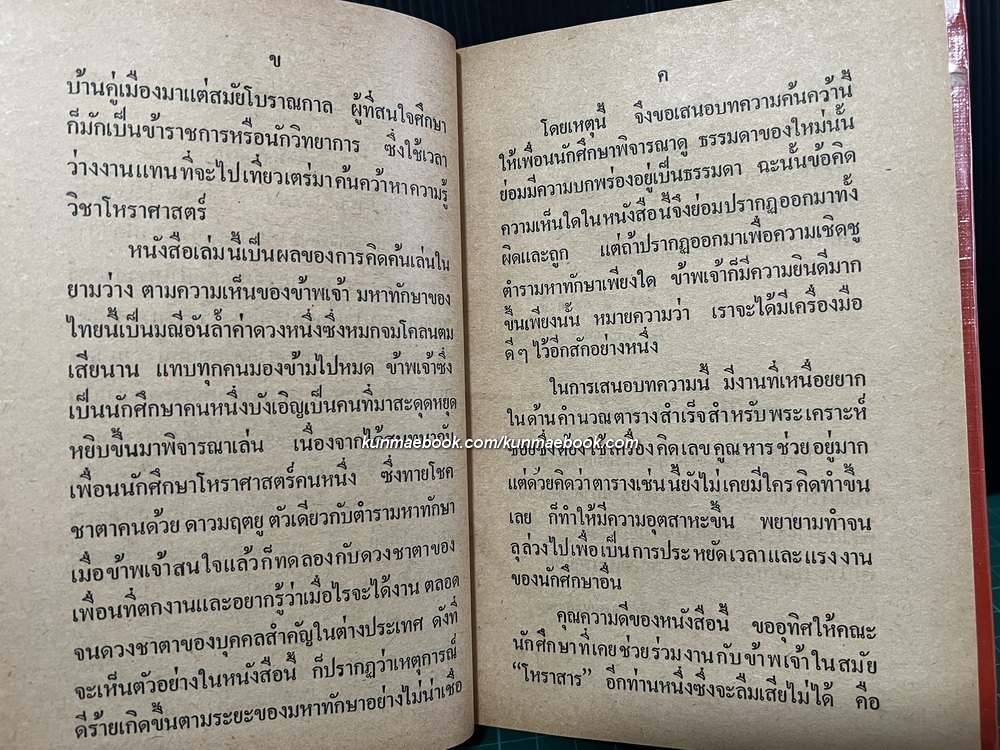 ข
บ้านคู่เมืองมาแต่สมัยโบราณกาล ผู้ที่สนใจศึกษา
ก็มักเป็นข้าราชการหรือนักวิทยาการ ซึ่งใช้เวลา
ว่างงานแทนที่จะไปเที่ยวเตร่มาค้นคว้าหาความรู้
วิชาโหราศาสตร์
หนังสือเล่มนี้เป็นผลของการคิดค้นเล่นใน
ยามว่าง ตามความเห็นของข้าพเจ้า มหาทักษาของ
ไทยนี้เป็นมณีอันล้ำค่าดวงหนึ่งซึ่งหมกจมโคลนตม
เสียนาน แทบทุกคนมองข้ามไปหมด ข้าพเจ้าซึ่ง
เป็นนักศึกษาคนหนึ่งบังเอิญเป็นคนที่มาสะดุดหยุด
หยิบขึ้นมาพิจารณาเล่น เนื่องจากได้
เพื่อนนักศึกษาโหราศาสตร์คนหนึ่ง ซึ่งทายโชค
ชาตาคนด้วย ดาวมฤตยู ตัวเดียวกับตำรามหาทักษา
เมื่อข้าพเจ้าสนใจแล้วก็ทดลองกับดวงชาตาของ
เพื่อนที่ตกงานและอยากรู้ว่าเมื่อไรจะได้งาน ตลอด
จนดวงชาตาของบุคคลสำคัญในต่างประเทศ ดังที่
จะเห็นตัวอย่างในหนังสือนี้ ก็ปรากฏว่าเหตุการณ์
ดีร้ายเกิดขึ้นตามระยะของมหาทักษาอย่างไม่น่าเชื่อ
ค
โดยเหตุนี้ จึงขอเสนอบทความค้นคว้านี้
ให้เพื่อนนักศึกษาพิจารณาดู ธรรมดาของใหม่นั้น
ย่อมมีความบกพร่องอยู่เป็นธรรมดา ฉะนั้นข้อคิด
ความเห็นใดในหนังสือนี้จึงย่อมปรากฏออกมาทั้ง
ผิดและถูก แต่ถ้าปรากฏออกมาเพื่อความเชิดชู
ตำรามหาทักษาเพียงใด ข้าพเจ้าก็มีความยินดีมาก
ขึ้นเพียงนั้น หมายความว่า เราจะได้มีเครื่องมือ
ดีๆ ไว้อีกสักอย่างหนึ่ง
ในการเสนอบทความนี้ มีงานที่เหนื่อยยาก
ในด้านคำนวณตารางสำเร็จสำหรับพระเคราะห์
ซอยซึ่งต้องใช้เครื่องคิดเลขคูณหารช่วยอยู่มาก
แต่ด้วยคิดว่าตารางเช่นนี้ยังไม่เคยมีใครคิดทำขึ้น
เลย ก็ทำให้มีความอุตสาหะขึ้น พยายามทำจน
ลุล่วงไปเพื่อเป็นการประหยัดเวลาและแรงงาน
ของนักศึกษาอื่น
คุณความดีของหนังสือนี้ ขออุทิศให้คณะ
นักศึกษาที่เคยช่วยร่วมงานกับข้าพเจ้าในสมัย
“โหราสาร” อีกท่านหนึ่งซึ่งจะลืมเสียไม่ได้ คือ
kunmaebook.com/kunmaebook.com